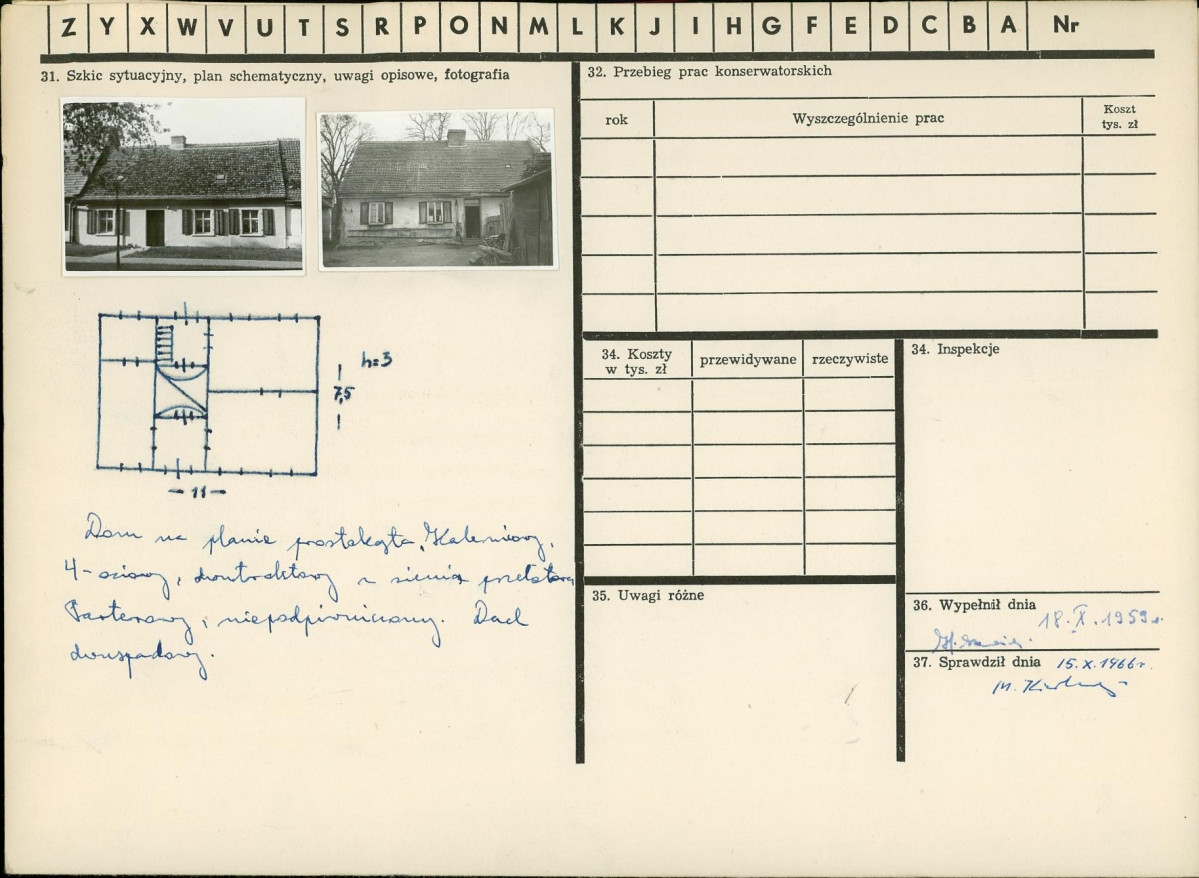 Z Y X W V U T S R P O N M L K J I H G F E D C B A Nr
31. Szkic sytuacyjny, plan schematyczny, uwagi opisowe, fotografia
h=3
7,5
11
Dom na planie prostokąta, Kalenicowy,
4-osiowy, dwutraktowy z sienią przelotową
Parterowy, niepodpiwniczony. Dach
dwuspadowy.
32. Przebieg prac konserwatorskich
rok
Wyszczególnienie prac
Koszt
tys. zł
34. Koszty
w tys. zł
przewidywane
rzeczywiste
34. Inspekcje
35. Uwagi różne
36. Wypełnił dnia
18.X.1959r.
37. Sprawdził dnia 15.X.1966r.